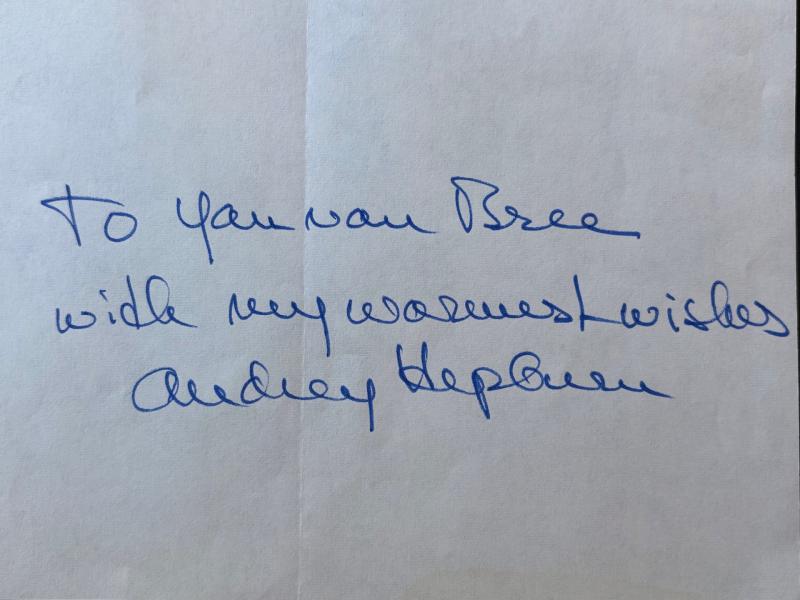 To Yan van Bree
with my warmest wishes
Audrey Hepburn